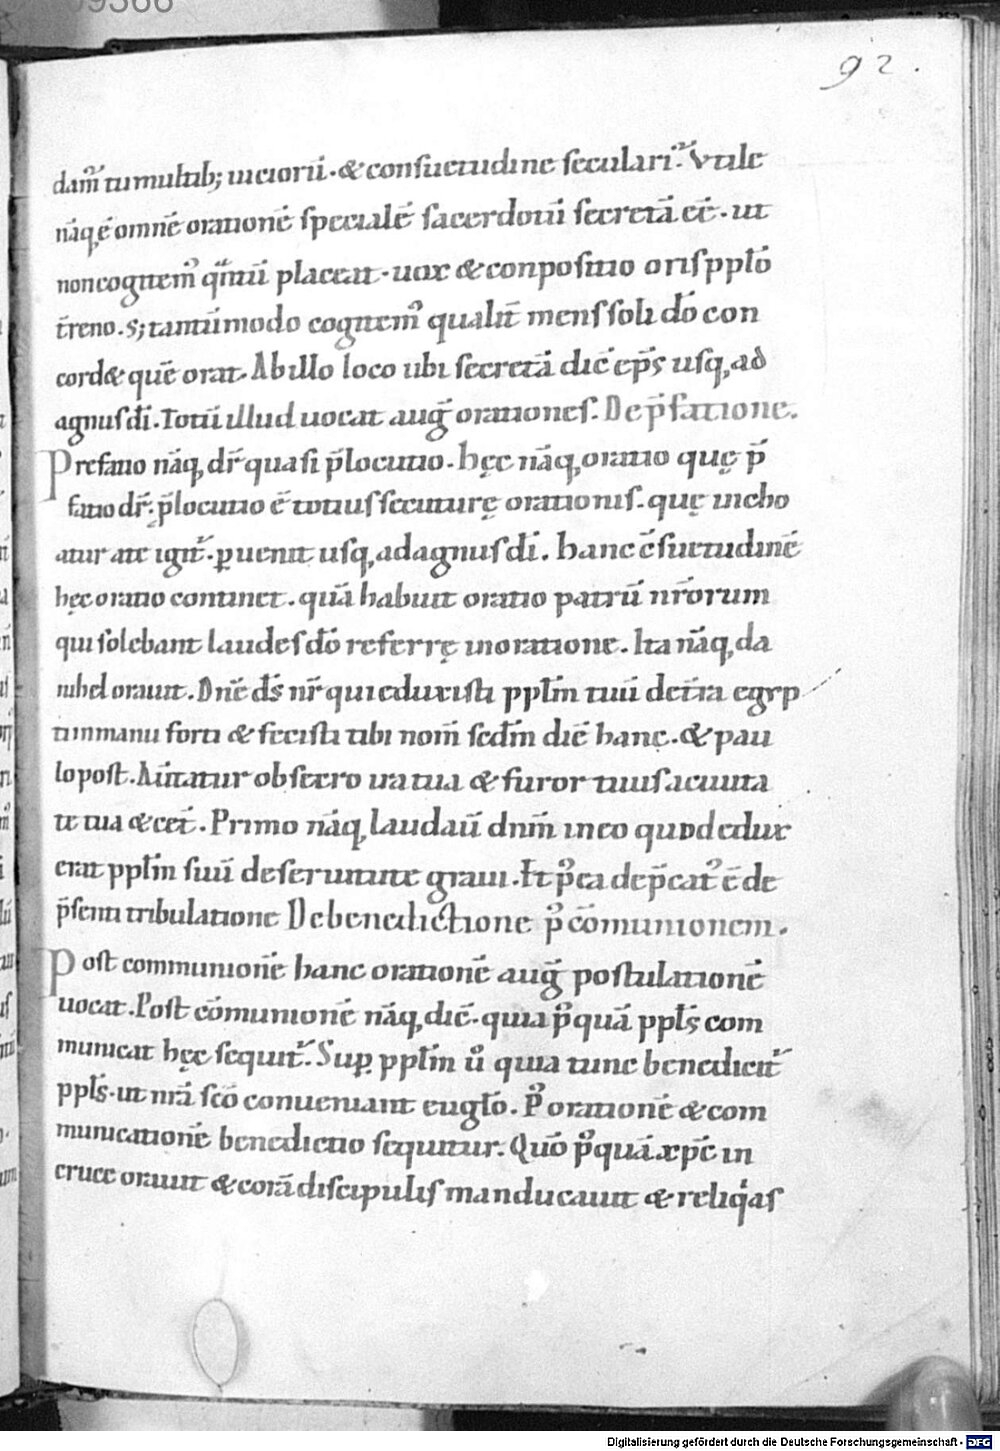 92.
dam̄ tumultib; uiciorū. & consuetudine seculari. Vtile
nāq, ē omnē orationē specialē sacerdotū secretā eē. ut
non cogitem᷒ q̄m̄ placeat. uox & conpositio oris pplō
t̄reno. s; tantūmodo cogitem᷒ qualit̄ mens soli dō con
cord& quē orat. Ab illo loco ubi secretā dic̄ ep̄s usq, ad
agnus dī. Totū illud uocat auḡ orationes. De p̄fatione.
Prefatio nāq, dr̄ quasi p̄locutio. hęc nāq, oratio quę p̄
fatio dr̄. p̄locutio ē totius secuturę orationis. quę incho
atur a te igit̄. ꝑuenit usq, ad agnus dī. hanc c̄suetudinē
hęc oratio continet. quā habuit oratio patrū nr̄orum
qui solebant laudes dō referrę in oratione. Ita nāq, da
nihel orauit. Dnē ds̄ nr̄ qui eduxisti pplm̄ tuū de t̄ra egyp
ti in manu forti & fecisti tibi nom̄ scdm̄ diē hanc. & pau
lo post. Au̅tatur obsecro ira tua & furor tuus a ciuita
te tua & cet̄. Primo nāq, laudau̅ dnm̄ in eo quod edux
erat pplm̄ suū de seruitute graui. Et p᷒ea dep̄cat᷒ ē de
p̄senti tribulatione De benedictione p᷒ cōmunionem.
Post communionē hanc orationē auḡ postulationē
uocat. Post cōmunionē nāq, dic̄. quia p᷒quā ppls̄ com
municat hęc sequit̄. Suꝑ pplm̄ ū quia tunc benedicit̄
ppls̄. ut nrā scō conueniant euglō. P᷒ orationē & com
municationē benedictio sequitur. Quō p᷒quā xp̄c in
cruce orauit & corā discipulis manducauit & reliqas
Digitalisierung gefördert durch die Deutsche Forschungsgemeinschaft - DFG